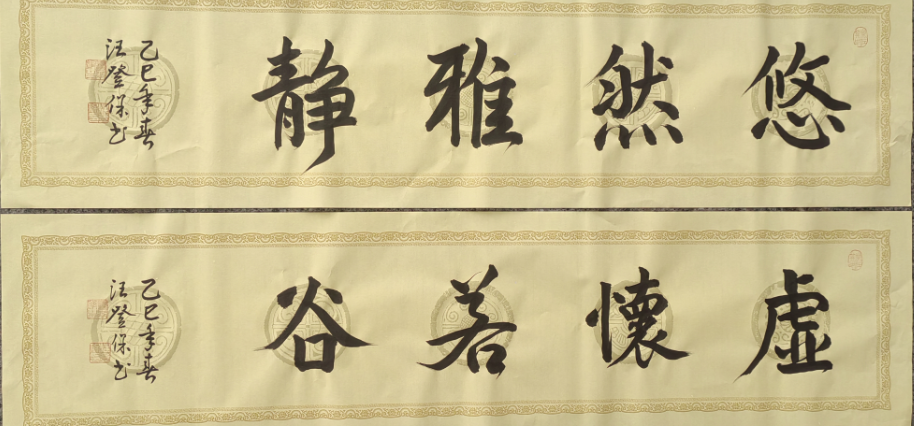 悠然雅静
乙巳年春
汪登保书
虚懷若谷
乙巳年春
汪登保书